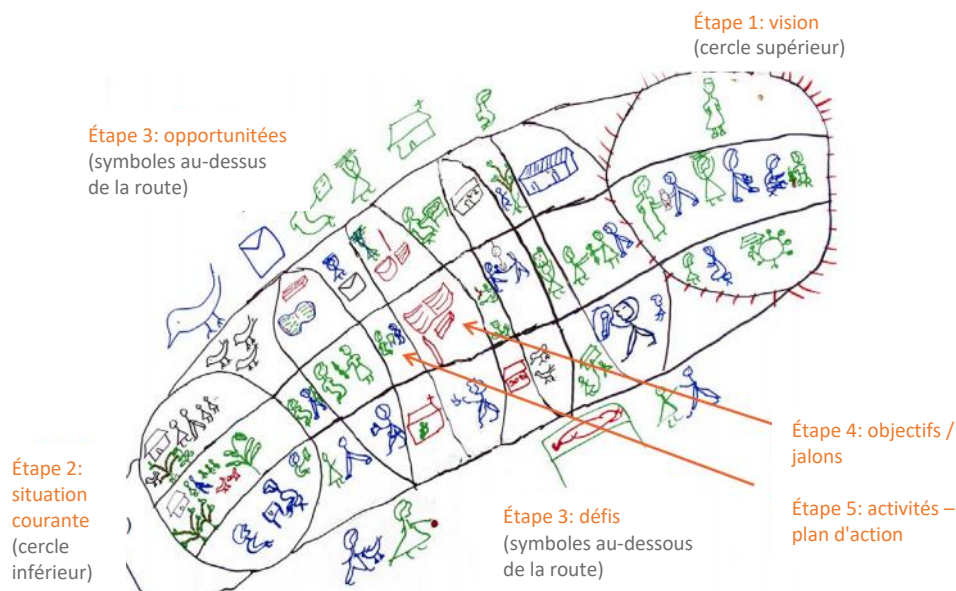 Étape 1: vision
(cercle supérieur)
Étape 3: opportunitées
(symboles au-dessus
de la route)
Étape 2:
situation
courante
(cercle
inférieur)
Étape 3: défis
(symboles au-dessous
de la route)
Étape 4: objectifs /
jalons
Étape 5: activités –
plan d'action